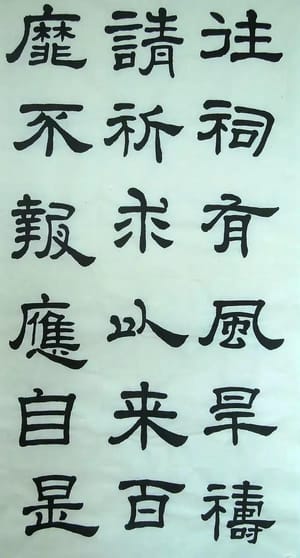 往祠有風旱禱
請祈求以来百
靡不報應自是